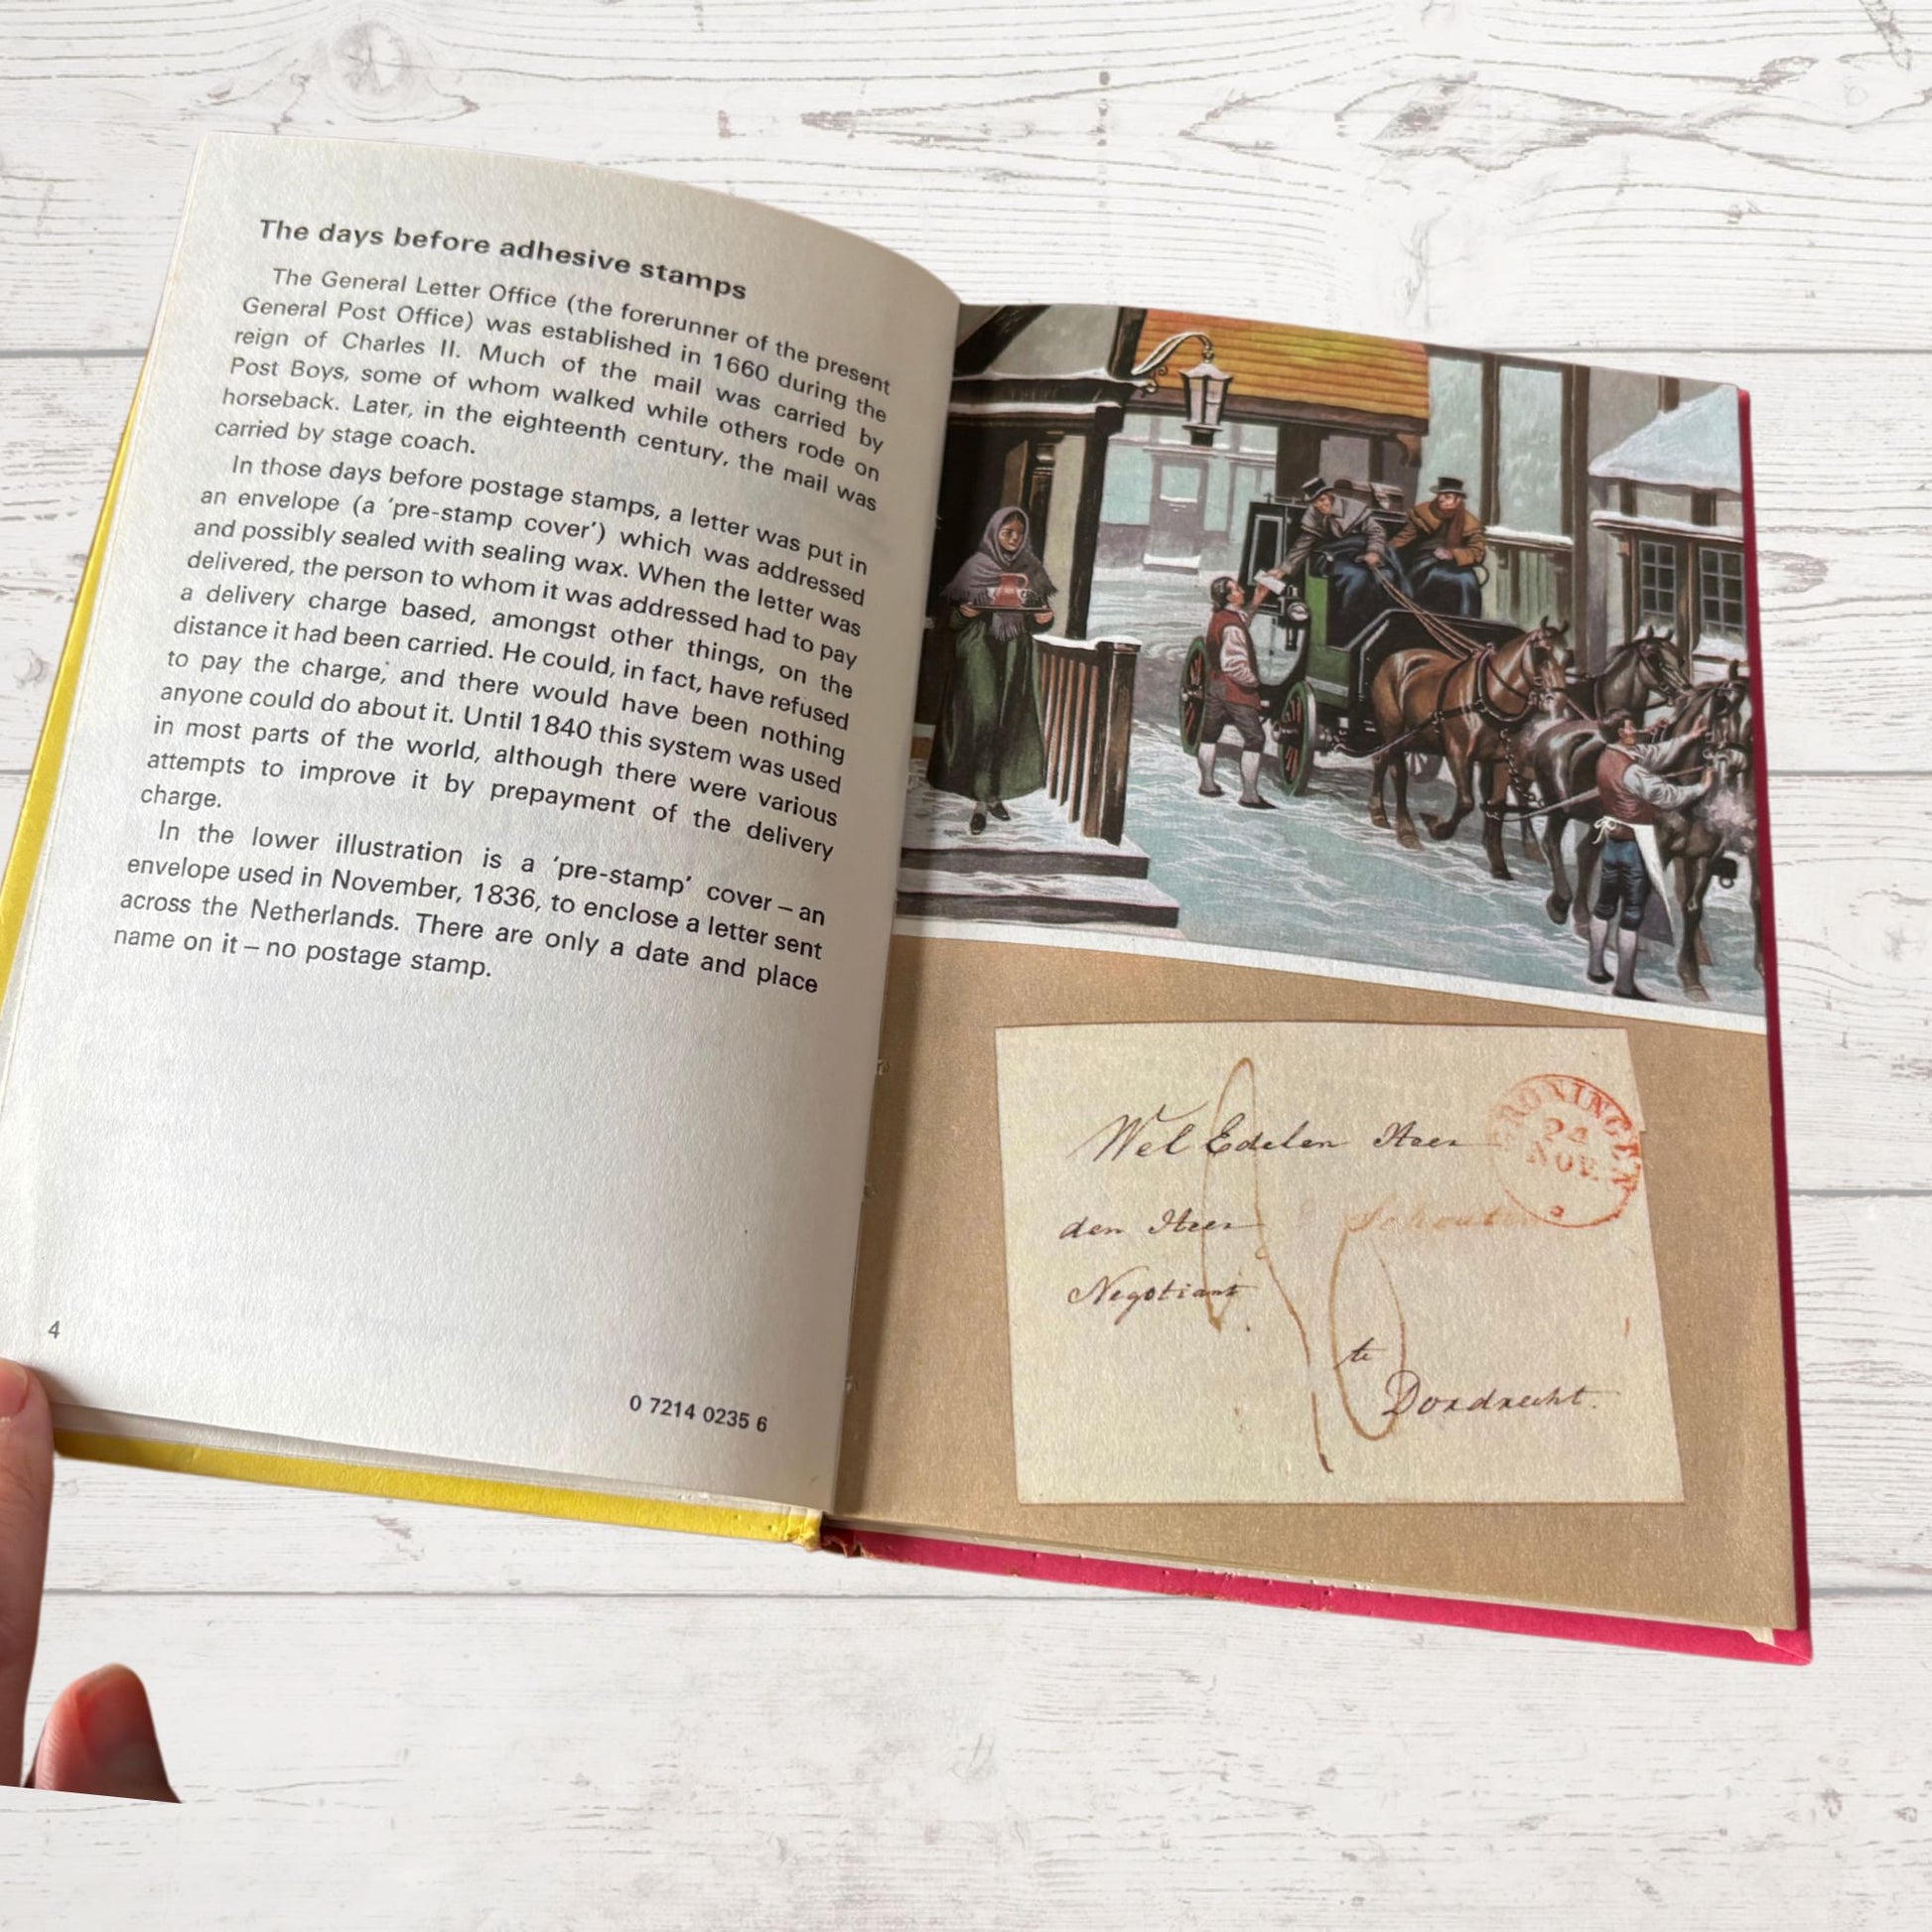 The days before adhesive stamps
The General Letter Office (the forerunner of the present
General Post Office) was established in 1660 during the
reign of Charles II. Much of the mail was carried by
Post Boys, some of whom walked while others rode on
horseback. Later, in the eighteenth century, the mail was
carried by stage coach.
In those days before postage stamps, a letter was put in
an envelope (a ‘pre-stamp cover’) which was addressed
and possibly sealed with sealing wax. When the letter was
delivered, the person to whom it was addressed had to pay
a delivery charge based, amongst other things, on the
distance it had been carried. He could, in fact, have refused
to pay the charge, and there would have been nothing
anyone could do about it. Until 1840 this system was used
in most parts of the world, although there were various
attempts to improve it by prepayment of the delivery
charge.
In the lower illustration is a ‘pre-stamp’ cover – an
envelope used in November, 1836, to enclose a letter sent
across the Netherlands. There are only a date and place
name on it – no postage stamp.
4
0 7214 0235 6
Wel Edelen Heer
GRONINGEN
24
NOV.
den Heer Schouten
Negotiant
te
Dordrecht.